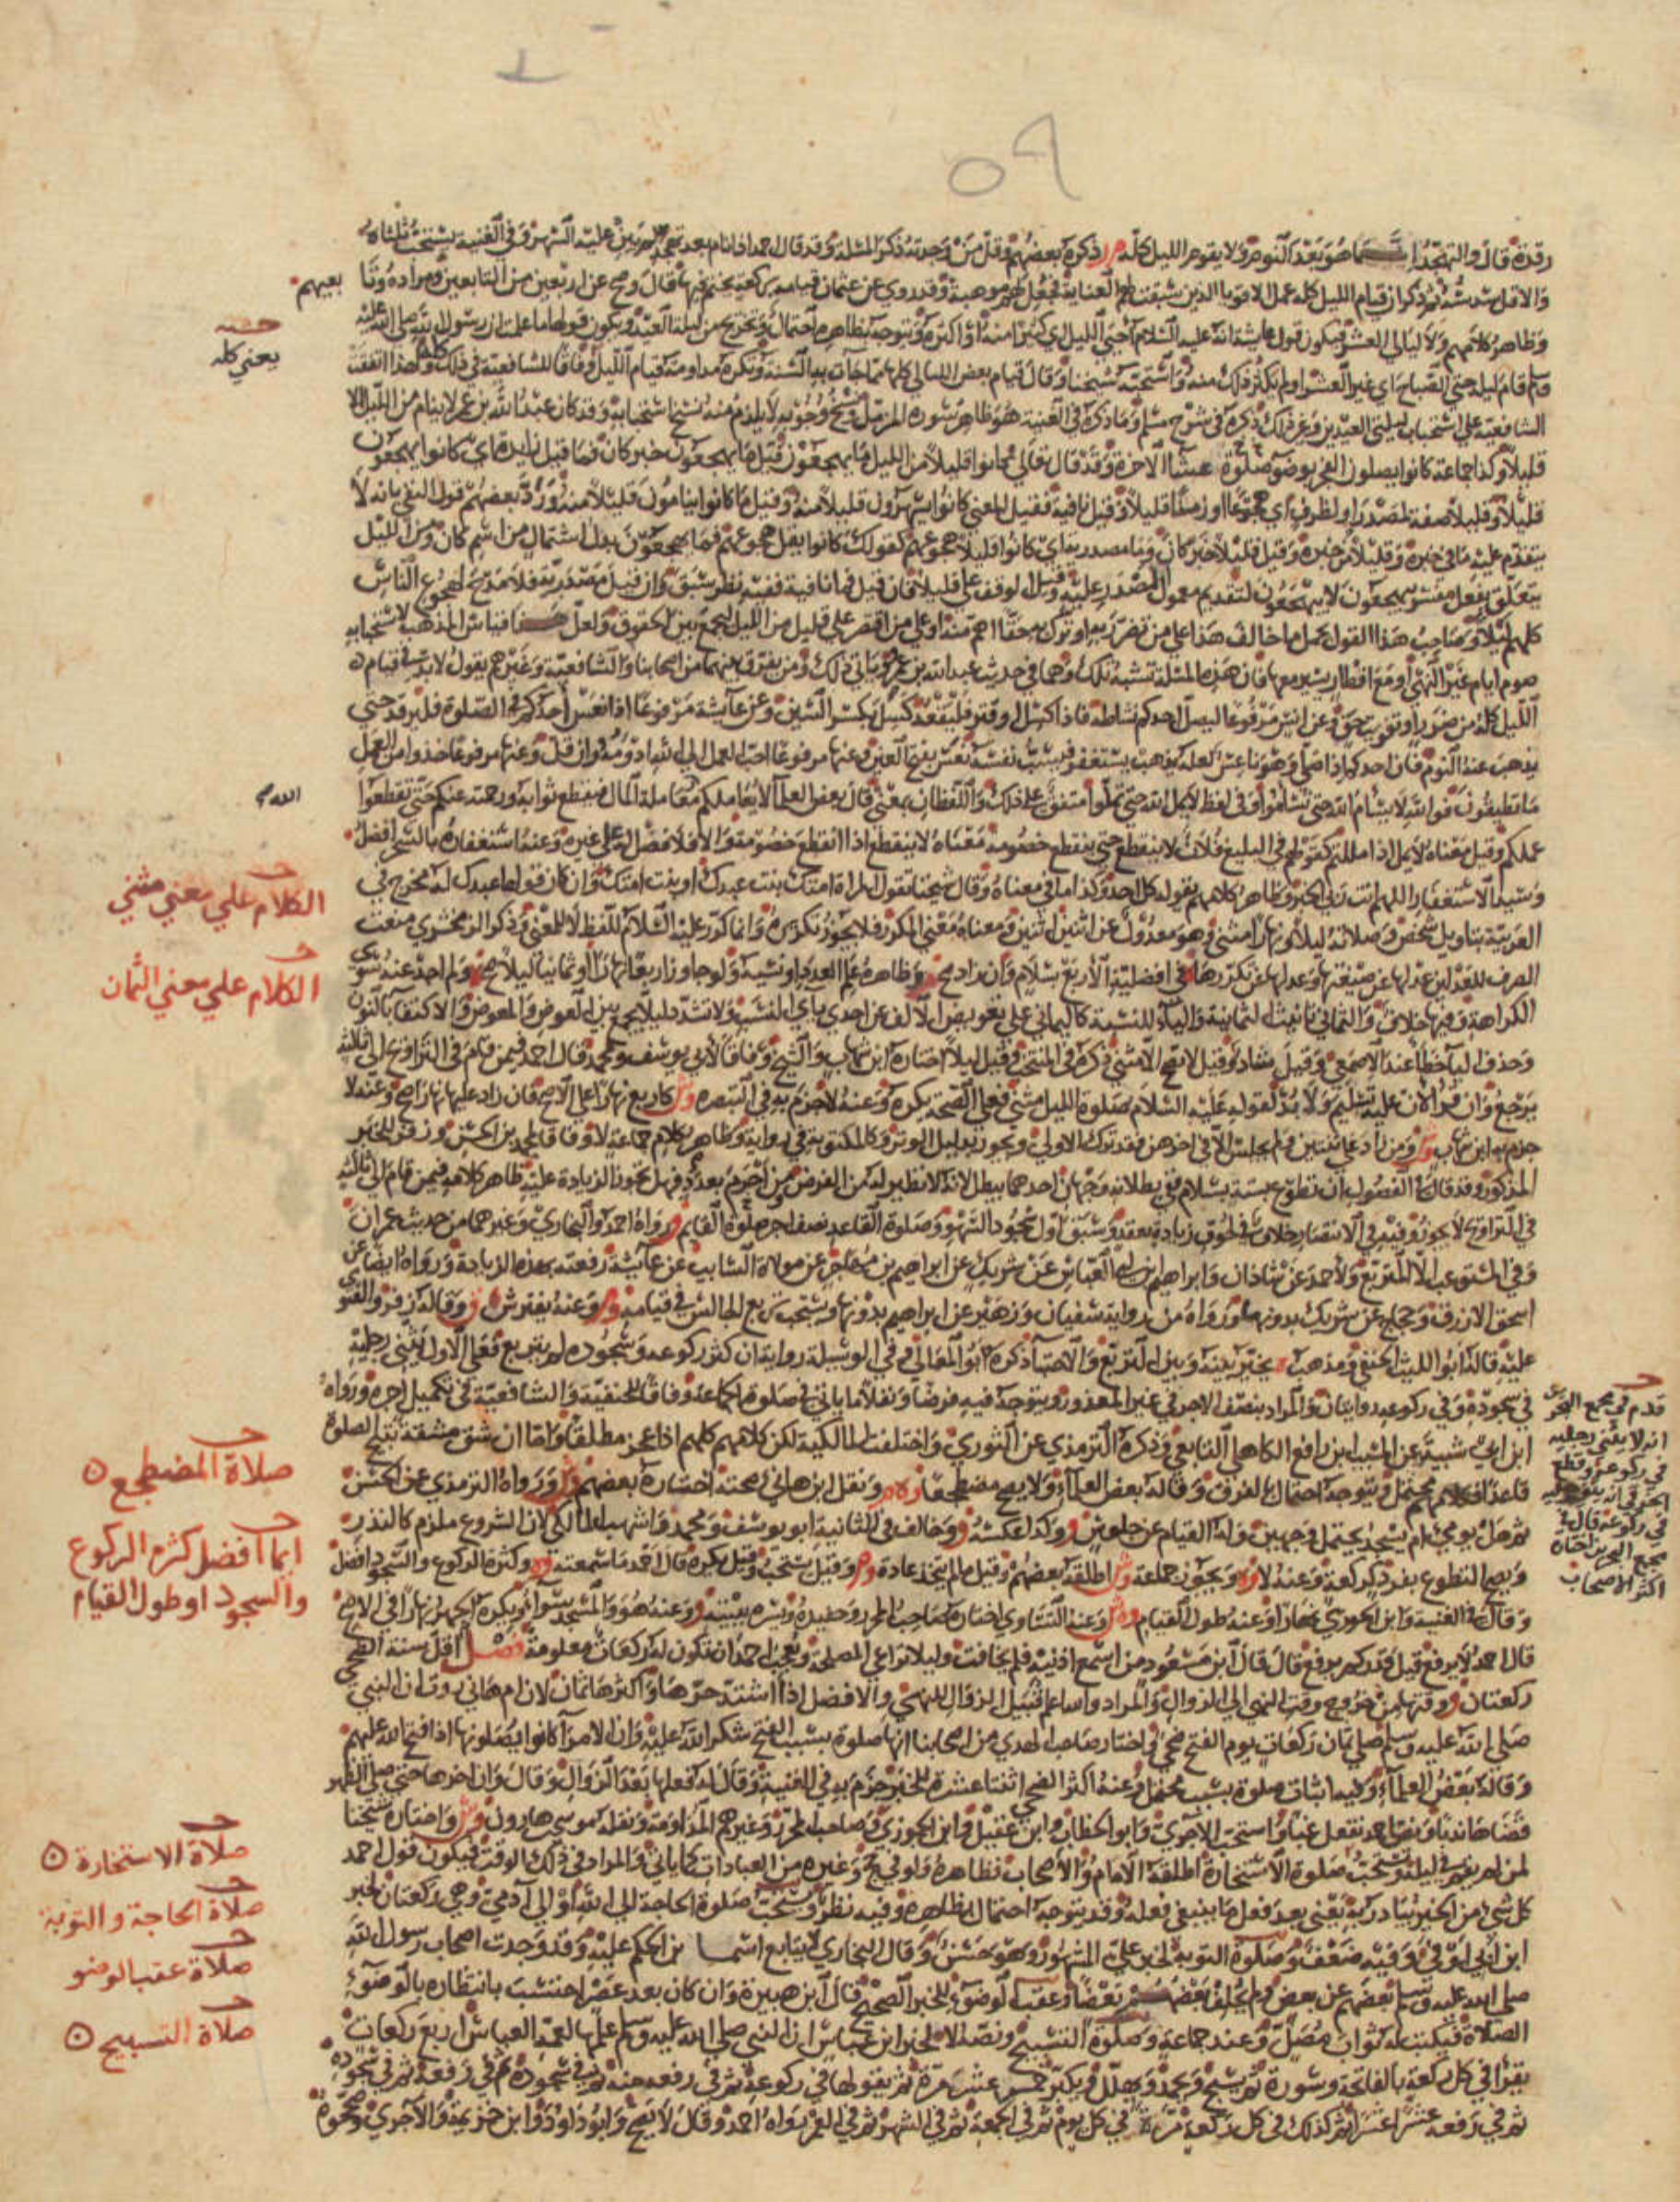 ٥٩
رقدة قال والتهجد انما هو بعد النوم ولا يقوم الليل كله م ر ذكره بعضهم وقل من وجدته ذكر المسئلة وقد قال احمد اذا نام بعد تهجده لم يبن عليه السهر وفي الغنية يستحب ثلثاه
والاقل سدسه ثم ذكر ان قيام الليل كله عمل الاقويا الذين سبقت لهم العناية فجعل لهم موهبة وقد روي عن عثمان قيامه بركعة يختم فيها قال وصح عن اربعين من التابعين ومراده وتابعيهم
وظاهر كلامهم ولا ليالي العشر فيكون قول عائشة انه عليه السلام احيى الليل اي كثيرا منه او اكثره ويتوجه بظاهره احتمال وتخريج من ليلة العيد ويكون قولها ما علمت ان رسول الله صلى الله عليه
وسلم قام ليلة حتى الصباح اي غير العشر او لم يكثر ذلك منه واستحبه شيخنا وقال قيام بعض الليالي كلها مما جاءت به السنة وتكره مداومة قيام الليل وفاقا للشافعية في ذلك كله ولهذا اتفقت
الشافعية على استحباب ليلتي العيدين وغير ذلك ذكره في شرح مسلم وما ذكره في الغنية هو ظاهر سورة المزمل ونسخ وجوبه لا يلزم منه نسخ استحبابه وقد كان عبد الله بن عمر لا ينام من الليل الا
قليلا وكذا جماعة كانوا يصلون الفجر بوضوء صلوة عشاء الاخرة وقد قال تعالى كانوا قليلا من الليل ما يهجعون قيل ما يهجعون خبر كان فما قيل زايدة اي كانوا يهجعون
قليلا وقليلا صفة لمصدر او لظرف اي هجوعا او زمنا قليلا وقيل نافية فقيل المعنى كانوا يسهرون قليلا منه وقيل ما كانوا ينامون قليلا منه ورد بعضهم قول النفي بانه لا
يتقدم عليه ما في خبره وقليلا من خبره وقيل قليلا خبر كان وما مصدرية اي كانوا قليلا هجوعهم كقولك كانوا يقل هجوعهم فما يهجعون بدل اشتمال من اسم كان ومن الليل
يتعلق بفعل مفسر بيهجعون لا يهجعون لتقديم معمول المصدر عليه وقيل الوقف على قليلا فان قيل فما نافية ففيه نظر سبق وان قيل مصدرية فلا مدح لهجوع الناس
كلهم ليلا وصاحب هذا القول يحمل ما خالف هذا على من تضرر به او ترك به حقا اهم منه او على من اقتصر على قليل من الليل ليجمع بين الحقوق ولعل هذا قياس المذهب لاستحبابه
صوم ايام غير النهي او مع افطار يسير معها فان هذه المسئلة تشبه تلك وهما في حديث عبد الله بن عمرو وياتي ذلك ومن يفرق بينهما من اصحابنا والشافعية وغيرهم يقول لا بد في قيام
الليل كله من ضرر او تفويت حق وعن انس مرفوعا ليصل احدكم نشاطه فاذا كسل او فتر فليقعد كسل بكسر السين وعن عائشة مرفوعا اذا نعس احدكم في الصلوة فليرقد حتى
يذهب عنه النوم فان احدكم اذا صلى وهو ناعس لعله يذهب يستغفر فيسب نفسه نعس بفتح العين وعنها مرفوعا احب العمل الى الله ادومه وان قل وعنها مرفوعا خذوا من العمل
ما تطيقون فوالله لا يسام الله حتى تساموا وفي لفظ لا يمل الله حتى تملوا متفق على ذلك واللفظان بمعنى قال بعض العلماء لا يعاملكم معاملة المال فيقطع ثوابه ورحمته عنكم حتى تقطعوا
عملكم وقيل معناه لا يمل اذا مللتم كقولهم في البليغ فلان لا ينقطع حتى ينقطع خصومه معناه لا ينقطع اذا انقطع خصومه والا فلا فضل له على غيره وعنه استغفاره بالسحر افضل
وسيد الاستغفار اللهم انت ربي الخبر وظاهر كلامهم يقوله كل احد وكذا ما في معناه وقال شيخنا تقول المراة امتك بنت عبدك او بنت امتك وان كان قولها عبدك له مخرج في
العربية بتاويل شخص وصلاته ليلا ونهارا مثنى وهو معدول عن اثنين اثنين ومعناه معنى المكرر فلا يجوز تكريره وانما كرر عليه السلام اللفظ لا للمعنى وذكر الزمخشري منعت
الصرف للعدلين عدلها عن صيغتها وعدلها عن تكررها
الكراهة وفيها خلاف والثماني تانيث الثمانية والياء للنسبة كاليماني على تعويض الالف عن احدى ياي النسب ولا تشدد ليلا يجمع بين العوض والمعوض والاكتفا بالنون
وحذف اليا خطا عند الاصمعي وقيل شاذ وقيل لا تصح الا مثنى ذكره في المنتخب وقيل ليلا اختاره ابن شهاب والشيخ وفاقا لابي يوسف ومحمد وقال احمد فيمن قام في التراويح الى ثالثة
يرجع وان قرا لان عليه تسليم ولا بد لقوله عليه السلام صلوة الليل مثنى فعلى الصحة يكره وعنه لا جزم به في التبصرة وش كاربع نهارا على الاصح فان زاد عليها نهارا صح وعنه لا
جزم به ابن شهاب وش ومن زاد على ثنتين ولم يجلس الا في اخرهن فقد ترك الاولى ويجوز بدليل الوتر وكالمكتوبة في رواية وظاهر كلام جماعة لا وفاقا لمحمد بن الحسن وزفر للخبر
المذكور وقد قال في الفصول ان تطوع بستة بسلام ففي بطلانه وجهان احدهما يبطل لانه لا نظير له من الفرض
في التراويح لا يجوز وفيه في الانتصار خلاف في لحوق زيادة بعقد وسبق اول سجود السهو وصلوة القاعد نصف اجر صلوة القايم ورواه احمد والبخاري وغيرهما من حديث عمران
وفي المستوعب الا المتربع ولاحمد عن شاذان وابراهيم ابن ابي العباس عن شريك عن ابراهيم بن مهاجر عن مولاه السايب عن عائشة رفعته بهذه الزيادة ورواه ايضا عن
اسحق الازرق وحجاج عن شريك بدونها ورواه من رواية سفيان وزهير عن ابراهيم بدونها ويستحب تربع الجالس في قيامه وعنه يفترش وقاله زفر والفتوى
عليه قاله ابو الليث الحنفي ومذهب يخير بينه وبين التربع والاحتباء ذكره ابو المعالي وفي الوسيلة رواية ان كثر ركوعه وسجوده لم يتربع فعلى الاول يثني رجليه
في سجوده وفي ركوعه روايتان والمراد بنصف الاجر في غير المعذور ويتوجه فيه فرضا ونفلا ما ياتي في صلوة الجماعة وفاقا للحنفية والشافعية في تكميل اجره ورواه
ابن ابي شيبة عن المسيب ابن رافع الكاهلي التابعي وذكره الترمذي عن الثوري واختلفت المالكية لكن كلامهم كلهم اذا عجز مطلقا واما ان شق مشقة تبيح الصلوة
قاعدا فكلامهم محتمل ويتوجه احتمال بالفرق وقاله بعض العلماء ولا يصح مضطجعا ونقل ابن هاني صحته اختاره بعضهم ورواه الترمذي عن الحسن
ثم هل يومي ام يسجد يحتمل وجهين وله القيام عن جلوس وكذا عكسه وخالف في الثانية ابو يوسف ومحمد واشهب المالكي لان الشروع ملزم كالنذر
ويصح التطوع بفرد كركعة وعنه لا ويجوز جماعة اطلقه بعضهم وقيل ما لم يتخذ عادة وقيل يستحب وقيل يكره قال احمد ما سمعته وكثرة الركوع والسجود افضل
وقال في الغنية وابن الجوزي نهارا وعنه طول القيام وعنه التساوي اختاره صاحب المحرر وحفيده وسره ببيته وعنه هو والمسجد سواء ويكره الجهر نهارا في الاصح
قال احمد لا يرفع قيل قدر كم يرفع قال قال ابن مسعود من اسمع اذنيه فلم يخافت وليلا يراعي المصلحة ويعجب احمد ان تكون له ركعات معلومة فصل اقل سنة الضحى
ركعتان ووقتها من خروج وقت النهي الى الزوال والمراد والله اعلم قبيل الزوال للنهي والافضل اذا اشتد حرها واكثرها ثمان لان ام هاني روت ان النبي
صلى الله عليه وسلم صلى ثمان ركعات يوم الفتح ضحى واختار صاحب الهدي من اصحابنا انها صلوة بسبب الفتح شكرا لله عليه وان الامراء كانوا يصلونها اذا فتح الله عليهم
وقاله بعض العلماء وفيه اثبات صلوة بسبب محتمل وعنه اكثر الضحى اثنتا عشرة للخبر جزم به في الغنية وقال له فعلها بعد الزوال وقال وان اخرها حتى صلى الظهر
قضاها ندبا ونص احمد تفعل غبا واستحب الاجري وابو الخطاب وابن عقيل وابن الجوزي وصاحب المحرر وغيرهم المداومة ونقله موسى بن هارون وش واختاره شيخنا
لمن لم يقم في ليله وتستحب صلوة الاستخارة اطلقه الامام والاصحاب فظاهره ولو في حج وغيره من العبادات كما ياتي والمراد في ذلك الوقت فيكون قول احمد
كل شيء من الخير يبادر به يعني بعد فعل ما ينبغي فعله وقد يتوجه احتمال بظاهره وفيه نظر وتستحب صلوة الحاجة الى الله او الى آدمي وهي ركعتان لخبر
ابن ابي اوفى وفيه ضعف وصلوة التوبة لخبر علي المشهور وهو حسن وقال البخاري لا يتابع اسما بن الحكم عليه وقد وجدت اصحاب رسول الله
صلى الله عليه وسلم بعضهم عن بعض ولم يحلف بعضهم بعضا وعقب الوضوء للخبر الصحيح قال ابن هبيرة وان كان بعد عصر احتسب بانتظاره بالوضوء
الصلاة فيكتب له ثواب مصل وعند جماعة وصلوة التسبيح ونصه لا لخبر ابن عباس ان النبي صلى الله عليه وسلم علمها لعمه العباس اربع ركعات
يقرا في كل ركعة بالفاتحة وسورة ثم يسبح ويحمد ويهلل ويكبر خمس عشرة مرة ثم يقولها في ركوعه ثم في رفعه منه ثم في سجوده ثم في رفعه ثم في سجوده
ثم في رفعه عشرا عشرا ثم كذلك في كل ركعة مرة في كل يوم ثم في الجمعة ثم في الشهر ثم في العمر رواه احمد وقال لا يصح وابو داود وابن خزيمة والاجري وصححوه
يعني كله
الكلام على معنى مثنى
الكلام على معنى الثمان
صلاة المضطجع
ايما افضل كثرة الركوع
والسجود او طول القيام
صلاة الاستخارة
صلاة الحاجة والتوبة
صلاة عقب الوضو
صلاة التسبيح
قدم في مجمع البحر
انه لا يثني رجليه
في ركوعه وقطع
في ركوعه قال في
مجمع البحرين اختاره
اكثر الاصحاب